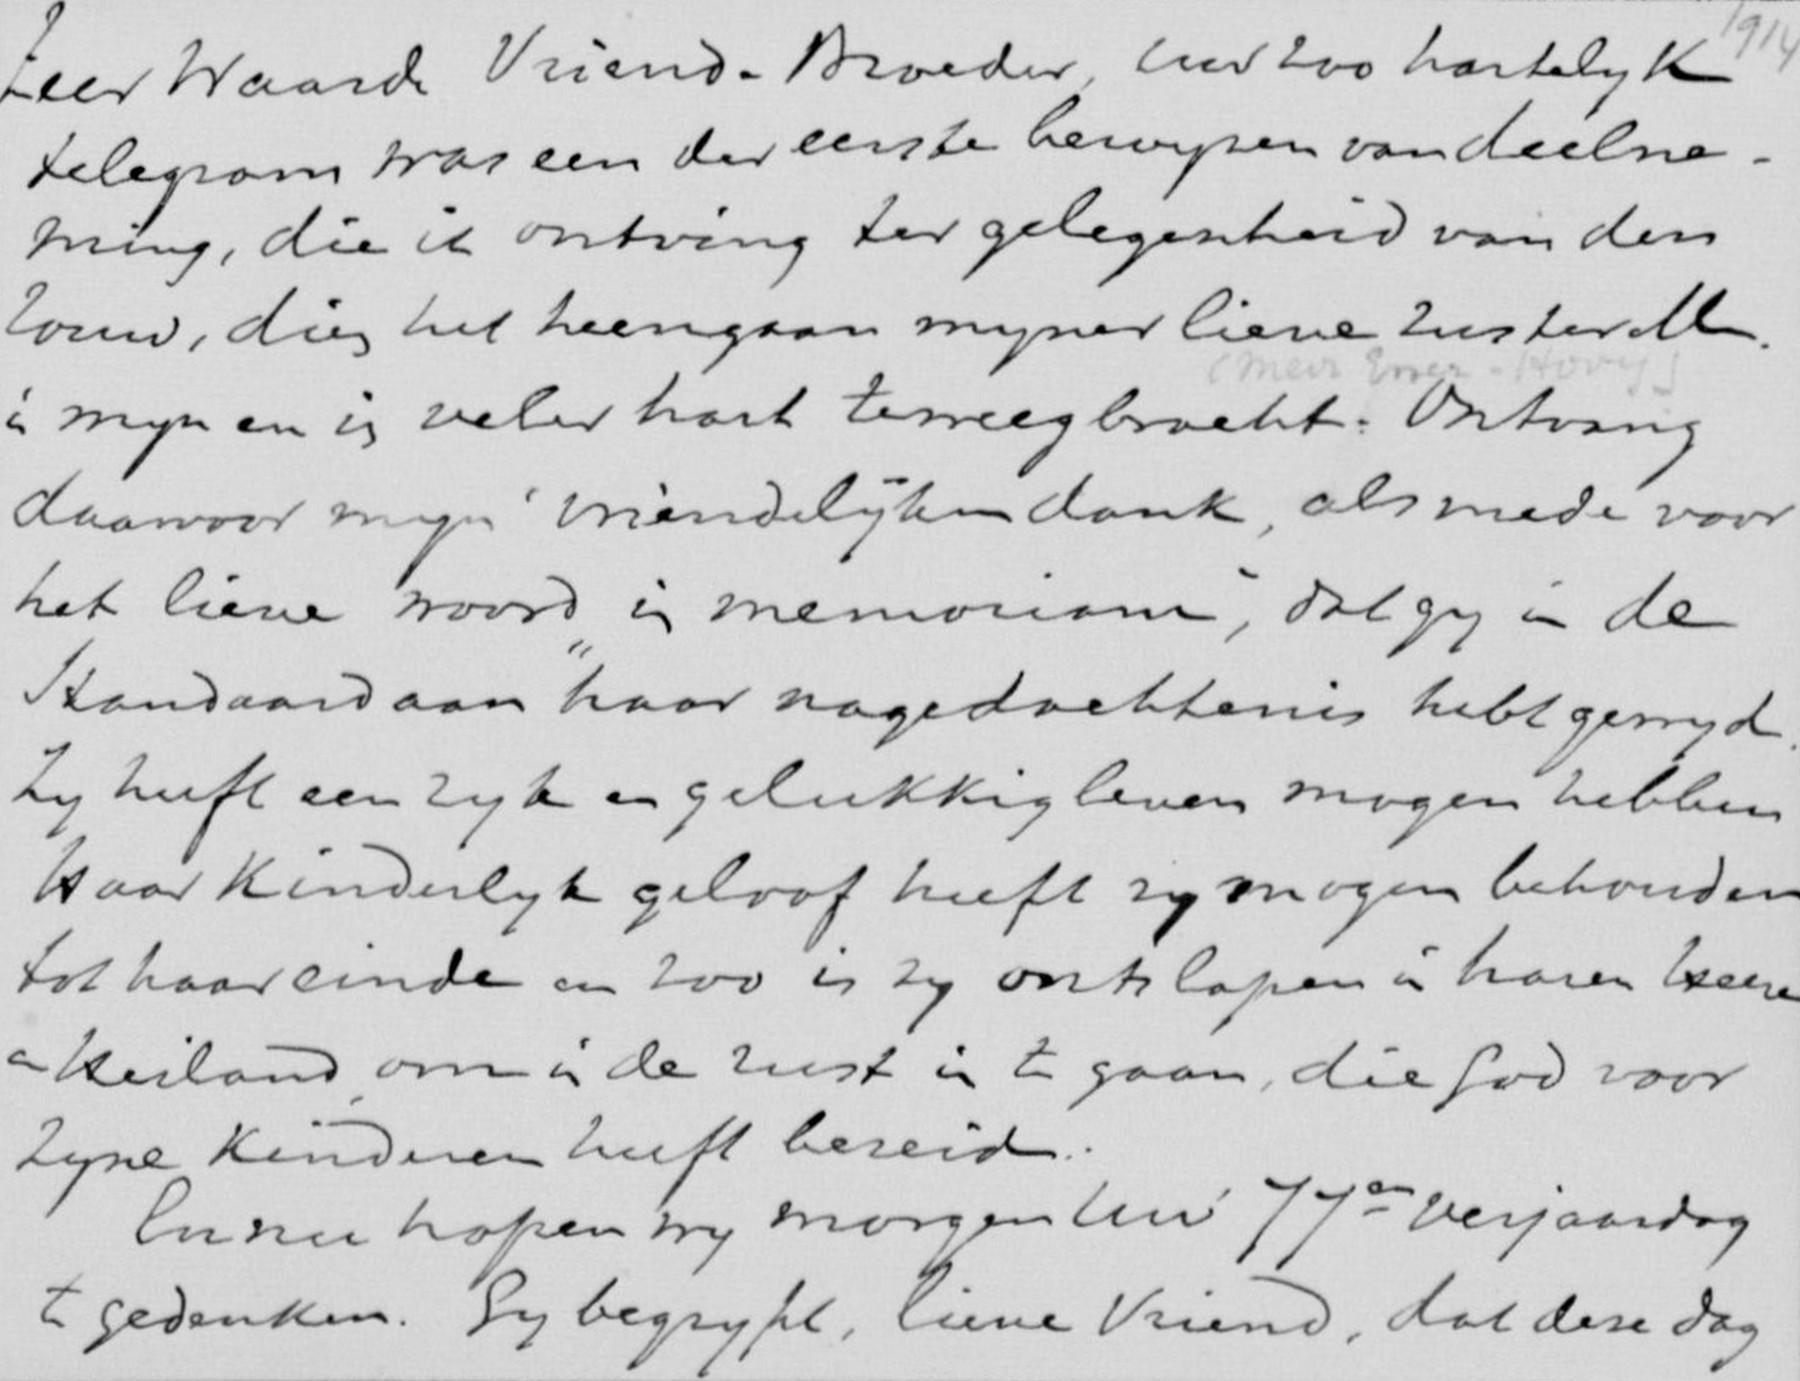 1914
Zeer Waarde Vriend-Broeder, Uw zoo hartelyk
telegram was een der eerste bewyzen van deelne-
ming, die ik ontving ter gelegenheid van den
rouw, dien het heengaan myner lieve zuster M.
(Mevr Esser-Hovy)
in myn en in veler hart teweegbracht. Ontvang
daarvoor myn vriendelijken dank, alsmede voor
het lieve woord „in memoriam", dat gy in de
Standaard aan haar nagedachtenis hebt gewyd.
Zy heeft een ryk en gelukkig leven mogen hebben
Haar Kinderlyk geloof heeft zy mogen behouden
tot haar einde en zoo is zy ontslapen in haren Heere
en Heiland, om in de rust in te gaan, die God voor
zyne Kinderen heeft bereid.
En nu hopen wy morgen Uw 77en Verjaardag
te gedenken. Gy begrypt, lieve Vriend, dat deze dag